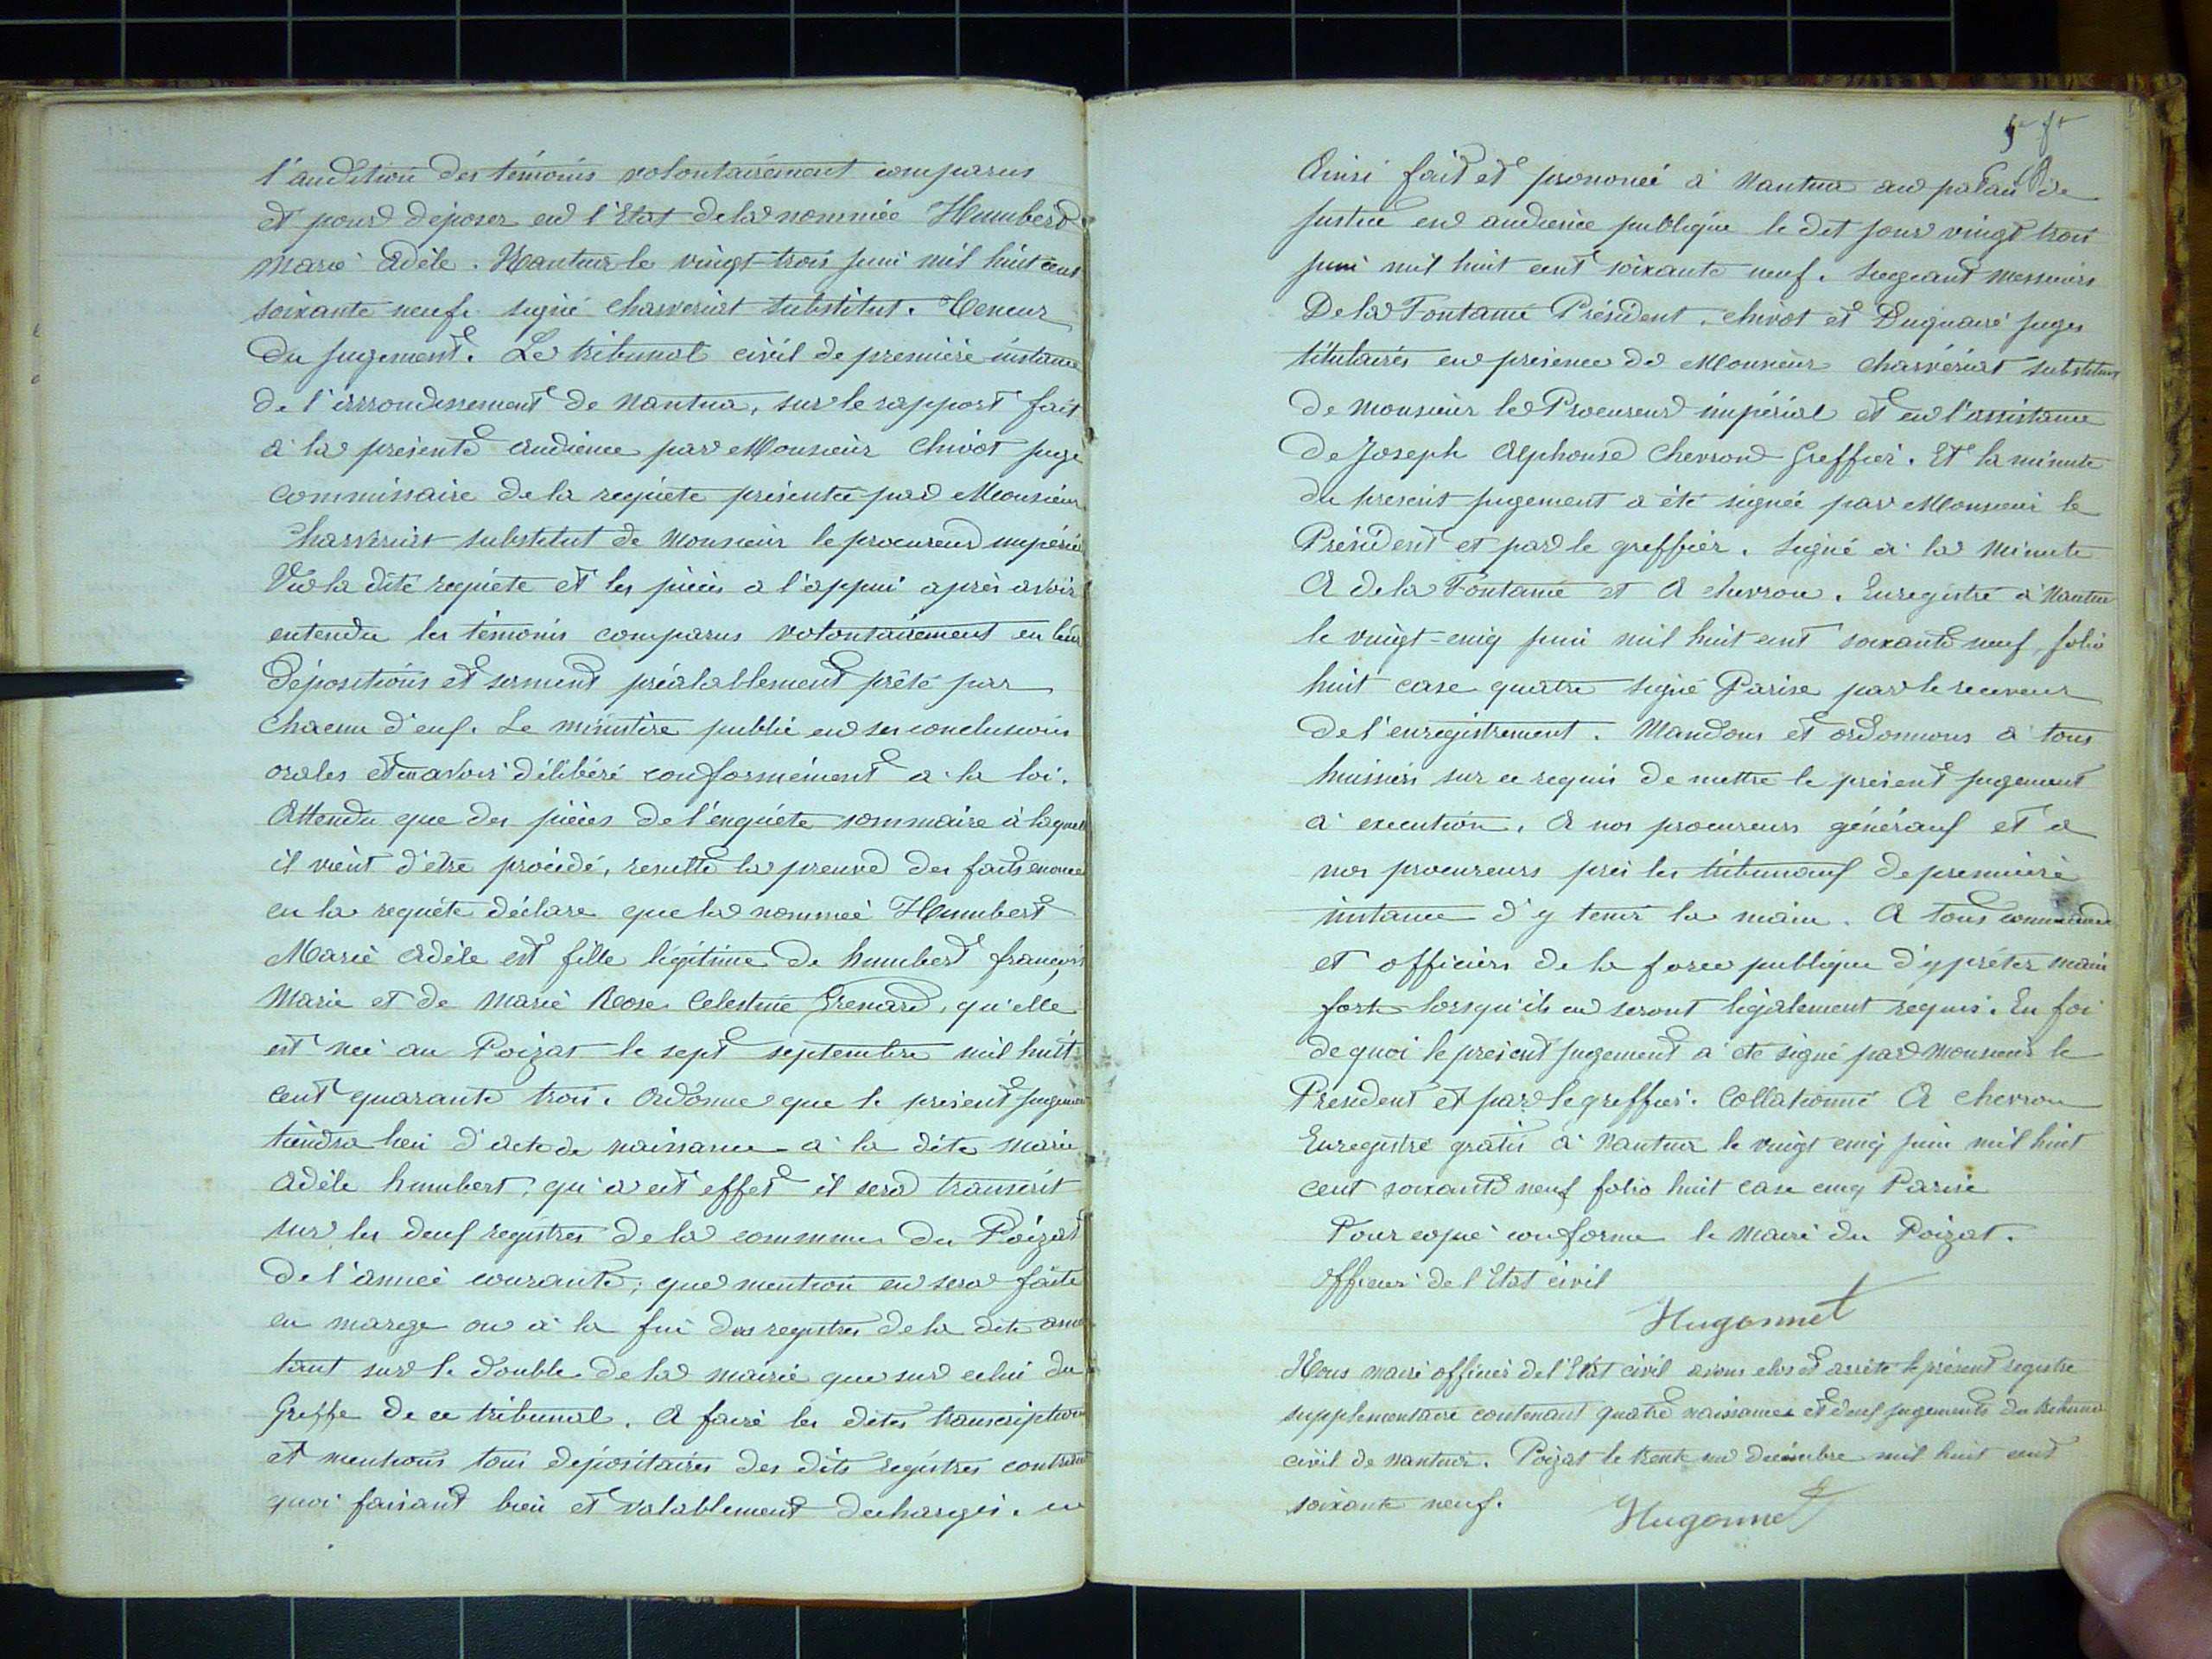 l'audition des témoins volontairement comparus
et pour déposer en l'Etat de la nommée Humbert
Marie Adèle. Nantua le vingt-trois juin mil huit cent
soixante neuf. signé charveriat substitut. Teneur
Du jugement. Le tribunal civil de première instance
de l'arrondissement de Nantua, sur le rapport fait
à la présente audience par Monsieur Chivot juge
Commissaire de la requête présentée par Monsieur
Charveriat substitut de Monsieur le procureur impérial
Vu la dite requête et les pièces a l'appui après avoir
entendu les témoins comparus volontairement en leur
dépositions et serment préalablement prêté par
chacun d'eux. Le ministère public en ses conclusions
orales et en avoir délibéré conformément a la loi.
Attendu que des pièces de l'enquête sommaire à laquelle
il vient d'être procédé, resulte la preuve des faits enoncés
en la requête déclare que la nommée Humbert
Marie Adèle est fille légitime de humbert françois
Marie et de Marie Rose Celestine Grenard, qu'elle
est née au Poizat le sept septembre mil huit
cent quarante trois. Ordonne que le présent jugement
tiendra lieu d'acte de naissance a la dite Marie
Adèle humbert, qu'a cet effet il sera transcrit
sur les deux registres de la commune du Poizat
De l'année courante; que mention en sera faite
en marge ou à la fin des registres de la dite année
tant sur le double de la mairie que sur celui du
Greffe de ce tribunal. A faire les dites transcriptions
et mentions tous dépositaires des dits régistres contraints
quoi faisant bien et valablement dechargés. en
5e ft
Ainsi fait et prononcé à Nantua au palais de
Justice en audience publique le dit jour vingt trois
juin mil huit cent soixante neuf. Siégeant messieurs
De la Fontaine Président. chivot et Duguairé juges
titulaires en présence de Monsieur charvériat substitut
de monsieur le Procureur impérial et en l'assistance
De Joseph Alphonse Chevron Greffier. Et la minute
du present jugement a été signée par Monsieur le
Président et par le greffier. Signé à la Minute
A de la Fontaine et A chevron. Enregistré à Nantua
le vingt-cinq juin mil huit cent soixante neuf, folio
huit case quatre signé Parise par le receveur
de l'enregistrement. Mandons et ordonnons à tous
huissiers sur ce requis de mettre le présent jugement
a execution. A nos procureurs généraux et a
nos procureurs près les tribunaux de première
instance d'y tenir la main. A tous commandants
et officiers de la force publique d'y prêter main
forte lorsqu'ils en seront légalement requis. En foi
de quoi le présent jugement a été signé par Monsieur le
Président et par le greffier. Collationné A Chevron
Enregistré gratis à Nantua le vingt cinq juin mil huit
cent soixante neuf folio huit case cinq Parise
Pour copie conforme le Maire du Poizat.
officier de l'Etat civil
Hugonnet
Nous maire officier de l'Etat civil avons clos et arrêté le présent registre
supplementaire contenant quatre naissances et deux jugements du tribunal
civil de Nantua. Poizat le trente un décembre mil huit cent
soixante neuf.
Hugonnet